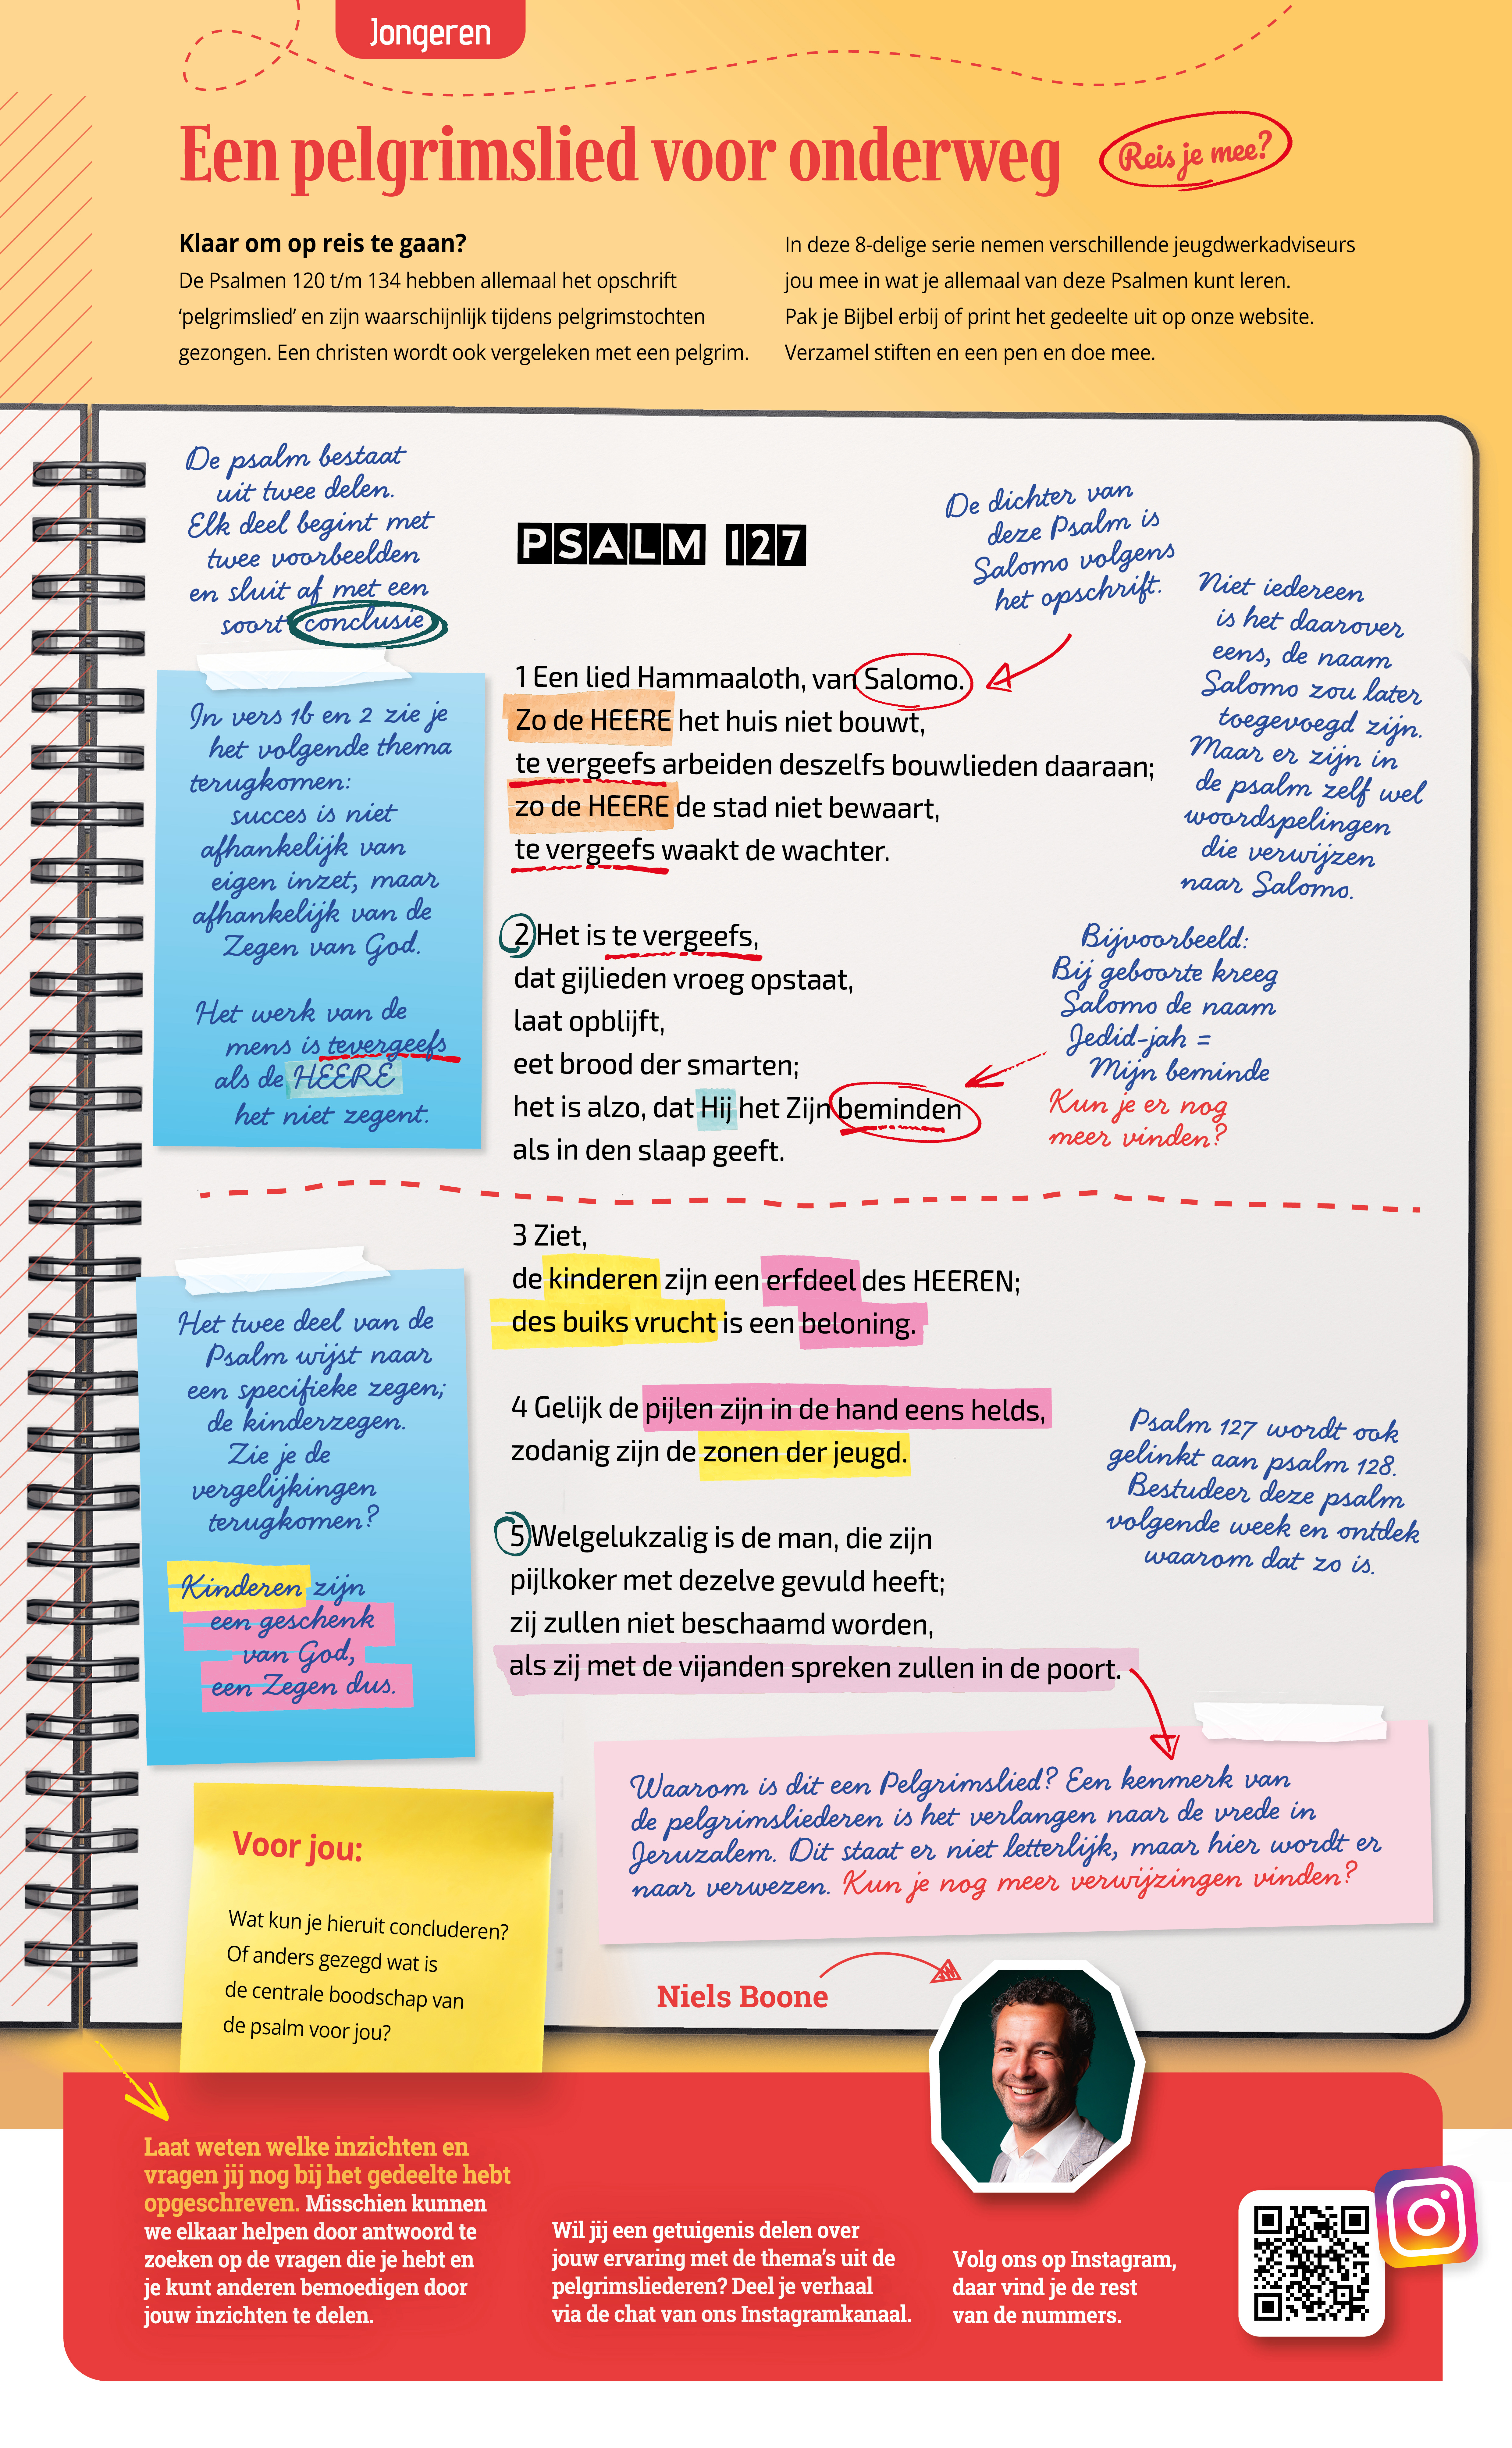 Jongeren
Een pelgrimslied voor onderweg
Reis je mee?
Klaar om op reis te gaan?
De Psalmen 120 t/m 134 hebben allemaal het opschrift
‘pelgrimslied’ en zijn waarschijnlijk tijdens pelgrimstochten
gezongen. Een christen wordt ook vergeleken met een pelgrim.
In deze 8-delige serie nemen verschillende jeugdwerkadviseurs
jou mee in wat je allemaal van deze Psalmen kunt leren.
Pak je Bijbel erbij of print het gedeelte uit op onze website.
Verzamel stiften en een pen en doe mee.
De psalm bestaat
uit twee delen.
Elk deel begint met
twee voorbeelden
en sluit af met een
soort conclusie
PSALM 127
De dichter van
deze Psalm is
Salomo volgens
het opschrift.
Niet iedereen
is het daarover
eens, de naam
Salomo zou later
toegevoegd zijn.
Maar er zijn in
de psalm zelf wel
woordspelingen
die verwijzen
naar Salomo.
In vers 1b en 2 zie je
het volgende thema
terugkomen:
succes is niet
afhankelijk van
eigen inzet, maar
afhankelijk van de
Zegen van God.
Het werk van de
mens is tevergeefs
als de HEERE
het niet zegent.
1 Een lied Hammaaloth, van Salomo.
Zo de HEERE het huis niet bouwt,
te vergeefs arbeiden deszelfs bouwlieden daaraan;
zo de HEERE de stad niet bewaart,
te vergeefs waakt de wachter.
2 Het is te vergeefs,
dat gijlieden vroeg opstaat,
laat opblijft,
eet brood der smarten;
het is alzo, dat Hij het Zijn beminden
als in den slaap geeft.
Bijvoorbeeld:
Bij geboorte kreeg
Salomo de naam
Jedid-jah =
Mijn beminde
Kun je er nog
meer vinden?
3 Ziet,
de kinderen zijn een erfdeel des HEEREN;
des buiks vrucht is een beloning.
4 Gelijk de pijlen zijn in de hand eens helds,
zodanig zijn de zonen der jeugd.
5 Welgelukzalig is de man, die zijn
pijlkoker met dezelve gevuld heeft;
zij zullen niet beschaamd worden,
als zij met de vijanden spreken zullen in de poort.
Het twee deel van de
Psalm wijst naar
een specifieke zegen;
de kinderzegen.
Zie je de
vergelijkingen
terugkomen?
Kinderen zijn
een geschenk
van God,
een Zegen dus.
Psalm 127 wordt ook
gelinkt aan psalm 128.
Bestudeer deze psalm
volgende week en ontdek
waarom dat zo is.
Waarom is dit een Pelgrimslied? Een kenmerk van
de pelgrimsliederen is het verlangen naar de vrede in
Jeruzalem. Dit staat er niet letterlijk, maar hier wordt er
naar verwezen. Kun je nog meer verwijzingen vinden?
Voor jou:
Wat kun je hieruit concluderen?
Of anders gezegd wat is
de centrale boodschap van
de psalm voor jou?
Niels Boone
Laat weten welke inzichten en
vragen jij nog bij het gedeelte hebt
opgeschreven. Misschien kunnen
we elkaar helpen door antwoord te
zoeken op de vragen die je hebt en
je kunt anderen bemoedigen door
jouw inzichten te delen.
Wil jij een getuigenis delen over
jouw ervaring met de thema’s uit de
pelgrimsliederen? Deel je verhaal
via de chat van ons Instagramkanaal.
Volg ons op Instagram,
daar vind je de rest
van de nummers.